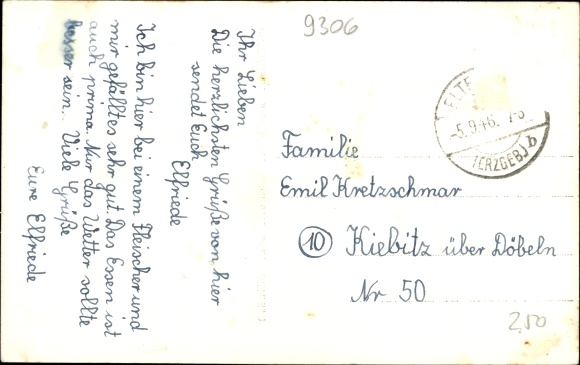 9306
Ihr Lieben
Die herzlichsten Grüße von hier
sendet Euch
Elfriede
Ich bin hier bei einem Fleischer und
mir gefällt es sehr gut. Das Essen ist
auch prima. Nur das Wetter sollte
besser sein. Viele Grüße
Eure Elfriede
-5.9.46.
(ERZGEB) b
Familie
Emil Kretzschmar
10 Kiebitz über Döbeln
Nr 50
2,50